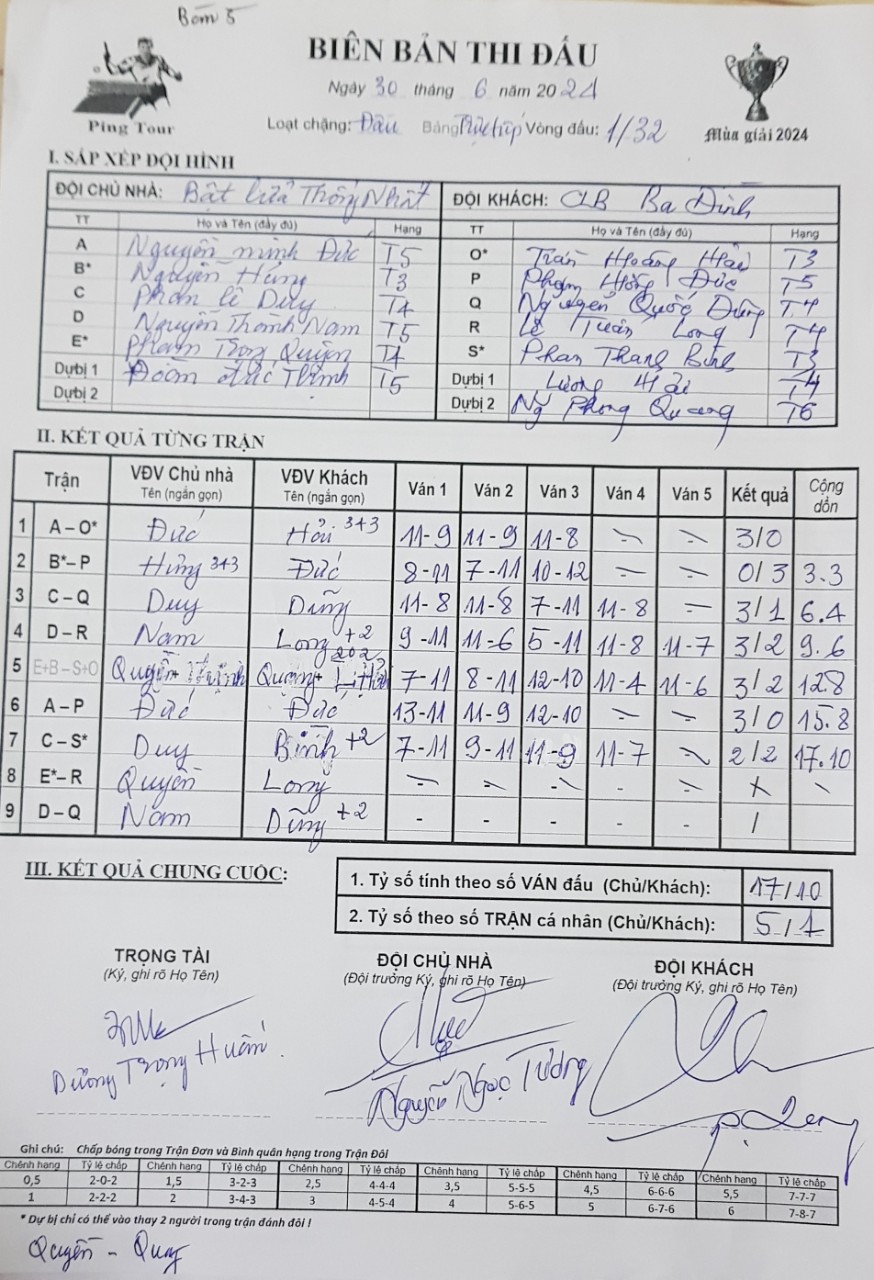 Bàn 5
BIÊN BẢN THI ĐẤU
Ngày 30 tháng 6 năm 2024
Ping Tour
Loạt chặng: Đấu Bảng Trực tiếp Vòng đấu: 1/32
Mùa giải 2024
I. SẮP XẾP ĐỘI HÌNH
ĐỘI CHỦ NHÀ: Bật lửa Thống Nhất ĐỘI KHÁCH: CLB Ba Đình
TT Họ và Tên (đầy đủ) Hạng TT Họ và Tên (đầy đủ) Hạng
A Nguyễn Minh Đức T5 O* Trần Hoàng Hải T3
B* Nguyễn Hùng T3 P Phạm Hồng Đức T5
C Phan lê Duy T4 Q Nguyễn Quốc Dũng T.4
D Nguyễn Thành Nam T5 R Lê Tuấn Long T4
E* Phạm Trọng Quyền T4 S* Phan Thanh Bình T3
Dự bị 1 Đoàn đức Thịnh T5 Dự bị 1 Lương Hải T4
Dự bị 2 Dự bị 2 Ng Phong Quang T6
II. KẾT QUẢ TỪNG TRẬN
Trận VĐV Chủ nhà Tên (ngắn gọn) VĐV Khách Tên (ngắn gọn) Ván 1 Ván 2 Ván 3 Ván 4 Ván 5 Kết quả Cộng dồn
1 A – O* Đức Hải 3+3 11-9 11-9 11-8 - - 3/0
2 B*– P Hưng 3+3 Đức 8-11 7-11 10-12 - - 0/3 3.3
3 C – Q Duy Dũng 11-8 11-8 7-11 11-8 - 3/1 6.4
4 D – R Nam Long +2 9-11 11-6 5-11 11-8 11-7 3/2 9.6
5 E+B – S+O Quyền+Thịnh Quang+L.Hải 202 7-11 8-11 12-10 11-4 11-6 3/2 12.8
6 A – P Đức Đức 13-11 11-9 12-10 - - 3/0 15.8
7 C – S* Duy Bình +2 7-11 9-11 11-9 11-7 - 2/2 17.10
8 E*– R Quyền Long - - - - - X \
9 D – Q Nam Dũng +2 - - - - - /
III. KẾT QUẢ CHUNG CUỘC:
1. Tỷ số tính theo số VÁN đấu (Chủ/Khách): 17/10
2. Tỷ số theo số TRẬN cá nhân (Chủ/Khách): 5/1
TRỌNG TÀI ĐỘI CHỦ NHÀ ĐỘI KHÁCH
(Ký, ghi rõ Họ Tên) (Đội trưởng Ký, ghi rõ Họ Tên) (Đội trưởng Ký, ghi rõ Họ Tên)
Dương Trọng Huấn. Nguyễn Ngọc Tường
Ghi chú: Chấp bóng trong Trận Đơn và Bình quân hạng trong Trận Đôi
Chênh hạng Tỷ lệ chấp Chênh hạng Tỷ lệ chấp Chênh hạng Tỷ lệ chấp Chênh hạng Tỷ lệ chấp Chênh hạng Tỷ lệ chấp Chênh hạng Tỷ lệ chấp
0,5 2-0-2 1,5 3-2-3 2,5 4-4-4 3,5 5-5-5 4,5 6-6-6 5,5 7-7-7
1 2-2-2 2 3-4-3 3 4-5-4 4 5-6-5 5 6-7-6 6 7-8-7
* Dự bị chỉ có thể vào thay 2 người trong trận đánh đôi !
Quyền - Quang